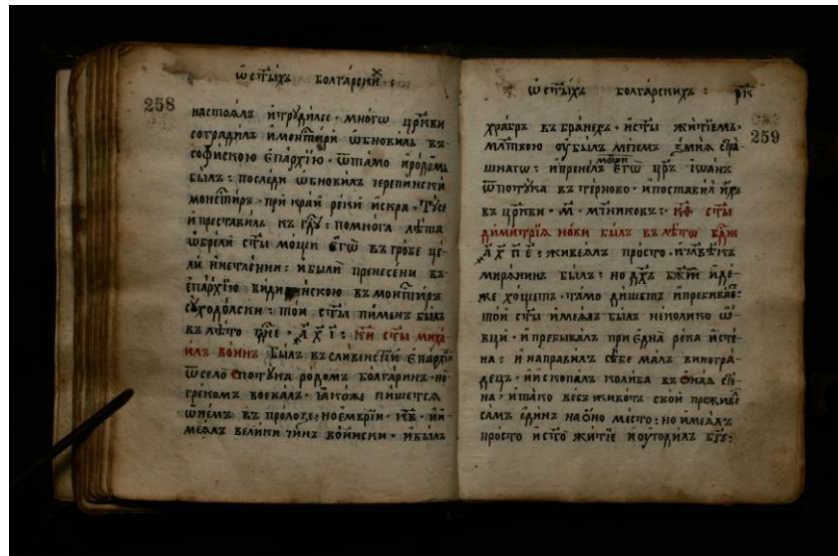 ѿ ст҃ыхъ болгарски х :
258
настоѧлъ и҆ трꙋди́лсе · мно́гѡ цр҃кви
сотради́лъ и҆ мон҃тири ѡ҆бнови́лъ въ
софи́скою є҆па́рхїю · ѿта́мо и҆ро́домъ
бы́лъ : последи ѡ҆бнови́лъ черепи́нски
монсти́ръ · при кра́й реки́ и҆скра · Тꙋ́ се
и҆ преста́вилъ къ гд҃ꙋ : помно́га лѣ́та
ѡ҆брели́ ст҃ы мо́щи є҆гѡ̀ въ гро́бе це́-
ли и҆ нетлѣ́нни : и҆бы́ли пренесе́ни въ
є҆па́рхїю види́нскою въ мон҃тиръ
сꙋходо́лски : то́й ст҃ы пи́менъ бы́лъ
въ лѣ́то гд҃не · ҂а х і : к҃и ст҃ы миха-
и́лъ во́инъ бы́лъ въ сли́венстїй є҆па́рхїи
ѿ село̀ поту́ка ро́домъ болга́ринъ · но
гре́комъ воева́лъ · ꙗ҆́коже пи́шетсѧ
ѡ҆ не́мъ въ проло́зе : ное́мврїи · к҃в · и҆ и-
меѧлъ вели́ки чи́нъ во́ински · и҆бы́лъ
ѿ ст҃ы́хъ болга́рскихъ :
259
хра́бръ въ бра́нехъ · и҆ ст҃ы житїе́мъ ·
мл҃твою ᲂу҆бы́лъ ꙁмі́ѧ стра́-
шнагѡ : и҆ прене́лъ мощи є҆гѡ̀ цр҃ъ і҆ѡа́нъ
ѿ поту́ка въ те́рново · и҆ поста́вилъ и҆́хъ
въ цр҃кви · м҃ · мч҃никовъ : к҃ѳ ст҃ы
дими́трїѧ но́ви бы́лъ въ лѣ́тѡ гд҃не
҂а х п е : живеѧлъ про́сто · и҆ чл҃вѣкъ
мирѧ́нинъ бы́лъ : но дх҃ъ бж҃їи и҆дѣ́-
же хо́щетъ · та́мо ди́шетъ и҆ пребива́е :
то́й ст҃ы и҆меѧлъ бы́лъ нѣколико ѡ҆-
вци · и҆ пребыва́лъ при є҆дна̀ река̀ и҆сте́-
на : и҆ напра́вилъ себе ма́лъ виногра-
децъ · и҆ и҆скопа́лъ коли́ба въ ѻна́ѧ сте-
на · и҆ та́ко весъ живо́тъ сво́й прожи́ве
самъ є҆ди́нъ на ѻ҆но ме́сто : но и҆меѧлъ
про́сто и҆ ст҃о житїе и҆ ᲂу҆годи́лъ бг҃ꙋ :